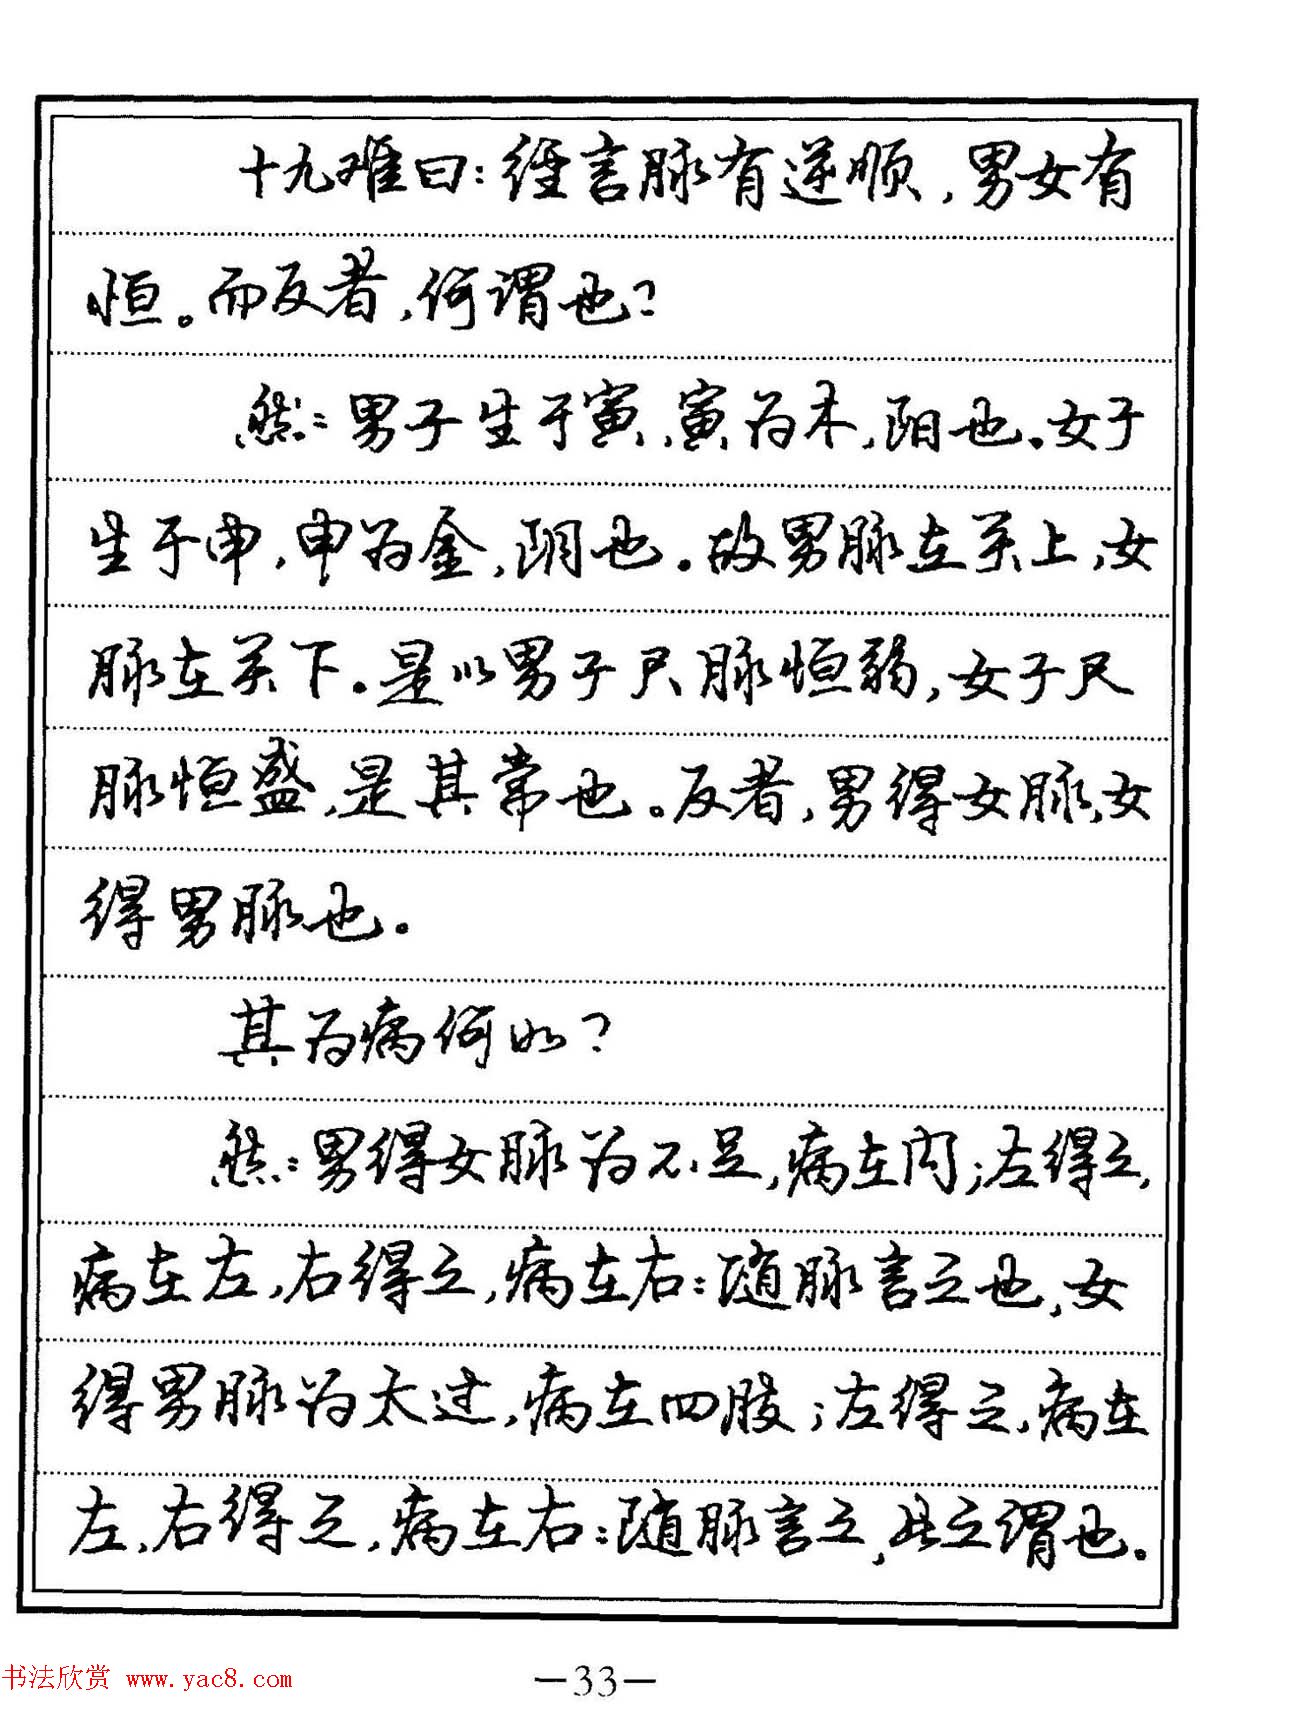 十九难曰：经言脉有逆顺，男女有
恒。而反者，何谓也？
然：男子生于寅，寅为木，阳也。女子
生于申，申为金，阴也。故男脉在关上，女
脉在关下。是以男子尺脉恒弱，女子尺
脉恒盛，是其常也。反者，男得女脉，女
得男脉也。
其为病何如？
然：男得女脉为不足，病在内；左得之，
病在左，右得之，病在右：随脉言之也，女
得男脉为太过，病在四肢；左得之，病在
左，右得之，病在右：随脉言之，此之谓也。
—33—
书法欣赏 www.yac8.com